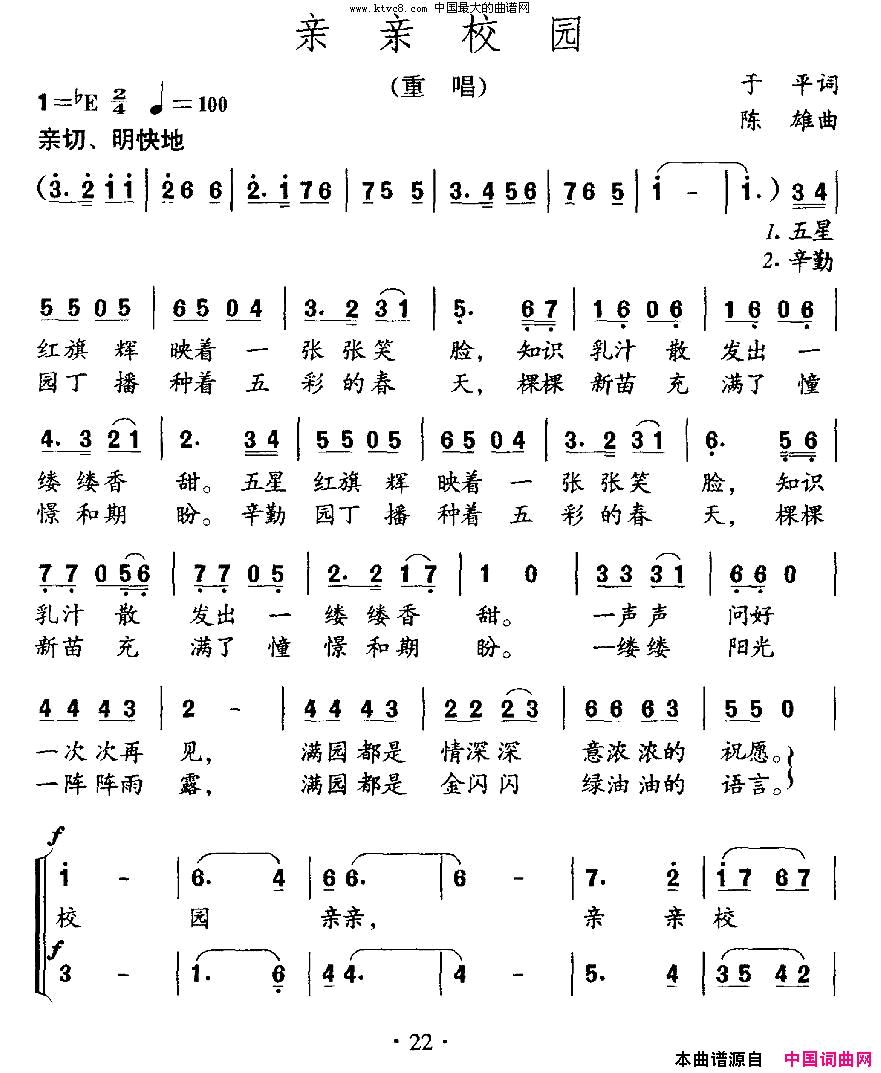 www.ktvc8.com 中国最大的曲谱网
亲 亲 校 园
(重 唱)
于 平词
1=♭E 2/4 ♩=100
陈 雄曲
亲切、明快地
(3. 2 1 1 | 2 6 6 | 2. 1 7 6 | 7 5 5 | 3. 4 5 6 | 7 6 5 | 1 - | 1. ) 3 4 |
1. 五星
2. 辛勤
5 5 0 5 | 6 5 0 4 | 3. 2 3 1 | 5. 6 7 | 1 6 0 6 | 1 6 0 6 |
红旗 辉 映着 一 张 张笑 脸, 知识 乳汁 散 发出 一
园丁 播 种着 五 彩 的春 天, 棵棵 新苗 充 满了 憧
4. 3 2 1 | 2. 3 4 | 5 5 0 5 | 6 5 0 4 | 3. 2 3 1 | 6. 5 6 |
缕 缕香 甜。 五星 红旗 辉 映着 一 张 张笑 脸, 知识
憬 和期 盼。 辛勤 园丁 播 种着 五 彩 的春 天, 棵棵
7 7 0 5 6 | 7 7 0 5 | 2. 2 1 7 | 1 0 | 3 3 3 1 | 6 6 0 |
乳汁 散 发出 一 缕 缕香 甜。 一声声 问好
新苗 充 满了 憧 憬 和期 盼。 一缕缕 阳光
4 4 4 3 | 2 - | 4 4 4 3 | 2 2 2 3 | 6 6 6 3 | 5 5 0 |
一次次再 见, 满园都是 情深深 意浓浓的 祝愿。
一阵阵雨 露, 满园都是 金闪闪 绿油油的 语言。
f
1 - | 6. 4 | 6 6. | 6 - | 7. 2 | 1 7 6 7 |
校 园 亲亲, 亲 亲 校
f
3 - | 1. 6 | 4 4. | 4 - | 5. 4 | 3 5 4 2 |
· 22 ·
本曲谱源自 中国词曲网